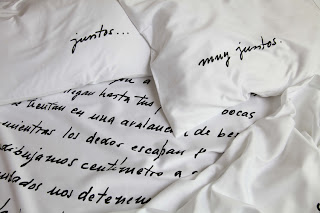 juntos...
muy juntos.
on a
llegan hasta tus bocas
tientan en una avalancha de bes
mientras los dedos escapan
dibujamos centímetro a
ulados nos detenem